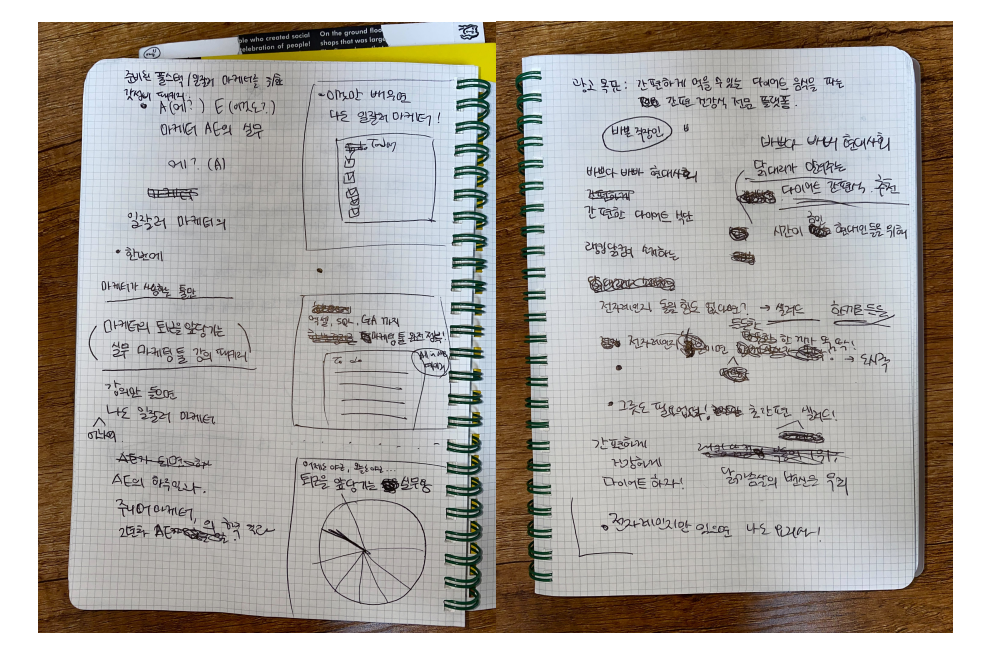 ple who created social
elebration of people!
On the ground floo
shops that was large
준비된 풀스택 / 일잘러 마케터를 위한
패키지
A (에?) E (이정도?)
마케터 AE의 실무
에? (A)
마케터
일잘러 마케터의
• 한번에
마케터가 사용하는 툴만
마케터의 퇴근을 앞당기는
실무 마케팅 툴 강의 패키지
강의만 들으면
나도 일잘러 마케터
AE가 되면
AE의 하루일과.
주니어 마케터,
2년차 AE
• 이것만 배우면
나도 일잘러 마케터!
Today
엑셀, SQL, GA 까지
마케팅 툴 완전 정복!
To do
어제도 야근, 오늘도 야근...
퇴근을 앞당기는 실무용
광고 목판 : 간편하게 먹을 수 있는 다이어트 음식을 파는
간편 건강식 전문 플랫폼.
바쁜 직장인
바쁘다 바빠 현대사회
간편하게
간편한 다이어트 식단
랭킹닭컴 소개하는
바쁘다 바빠 현대사회
닭대리가 알려주는
다이어트 간편식 추천
시간이 현대인들을 위해
전자레인지 돌릴 힘도 없다면? → 샐러드
든든한
전자레인지 이면 한 끼가 뚝딱!
→ 도시락
• 그릇도 필요없다! 초간편 샐러드!
간편하게
건강하게
다이어트 하자!
닭가슴살의 변신은 무죄
• 전자레인지만 있으면 나도 요리사!